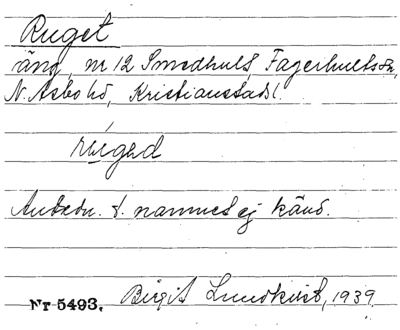 Ruget
äng, nr 12 Smedhult, Fagerhults sn,
N. Åsbo hd, Kristianstad l.
rúged
Anledn. t. namnet ej känd.
Nr 5493. Birgit Lundkvist, 1939.